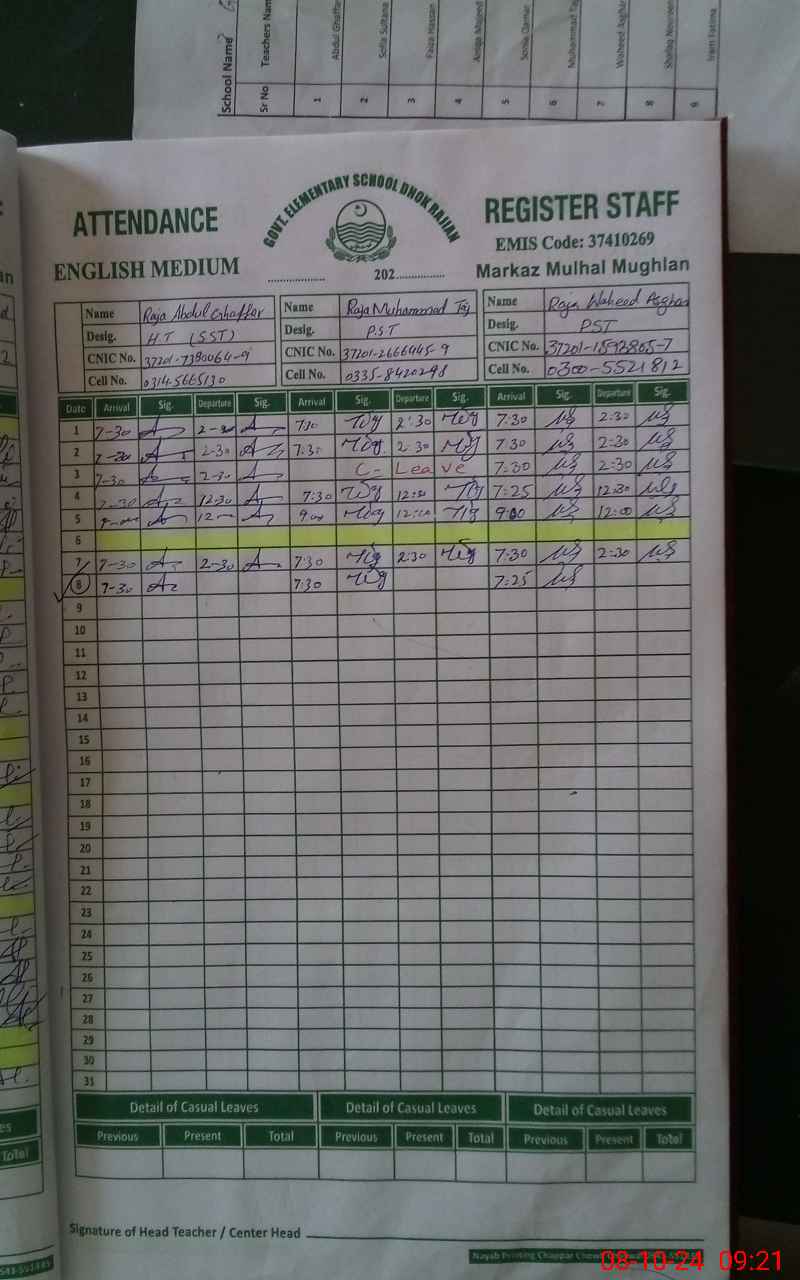 School Name
Sr No Teachers Name
1 Abdul Ghaffar
2 Sofia Sultana
3 Faiza Hassan
4 Majeed
5 Sonia Qamar
6 Muhammad Taj
7 Waheed Asghar
8 Shafaq Noreen
9 Iram Fatima
ATTENDANCE
GOVT. ELEMENTARY SCHOOL DHOK RAJIAN
REGISTER STAFF
EMIS Code: 37410269
ENGLISH MEDIUM
202
Markaz Mulhal Mughlan
Name Raja Abdul Ghaffar Name Raja Muhammad Taj Name Raja Waheed Asghar
Desig. HT (SST) Desig. P.S.T Desig. PST
CNIC No. 37201-7380064-9 CNIC No. 37201-2666445-9 CNIC No. 37201-1592865-7
Cell No. 03145665130 Cell No. 0335-8420298 Cell No. 0300-5521812
Date Arrival Sig. Departure Sig. Arrival Sig. Departure Sig. Arrival Sig. Departure Sig.
1 7-30 2-30 7:30 2:30 7:30 2:30
2 7-30 2-30 7:30 2:30 7:30 2:30
3 7-30 2-30 C- Leave 7:30 2:30
4 7-30 12-30 7:30 12:30 7:25 12:30
5 12 9:00 9:00 12:00
6
7 7-30 2-30 7:30 2:30 7:30 2:30
8 7-30 7:30 7:25
9
10
11
12
13
14
15
16
17
18
19
20
21
22
23
24
25
26
27
28
29
30
31
Detail of Casual Leaves Detail of Casual Leaves Detail of Casual Leaves
Previous Present Total Previous Present Total Previous Present Total
Total
Signature of Head Teacher / Center Head
Nayab Printing Chappar
08-10-24 09:21